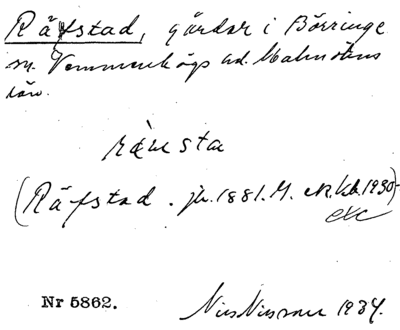 Räfstad, gårdar i Börringe
sn. Vemmenhögs hd. Malmöhus
län.
räu sta
(Räfstad . jb. 1881. M. ek. kb. 1930)
etc
Nr 5862.
Nils Nilsson 1934.